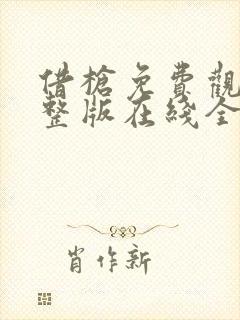 借槍免費觀
整版在綫全
肖作新